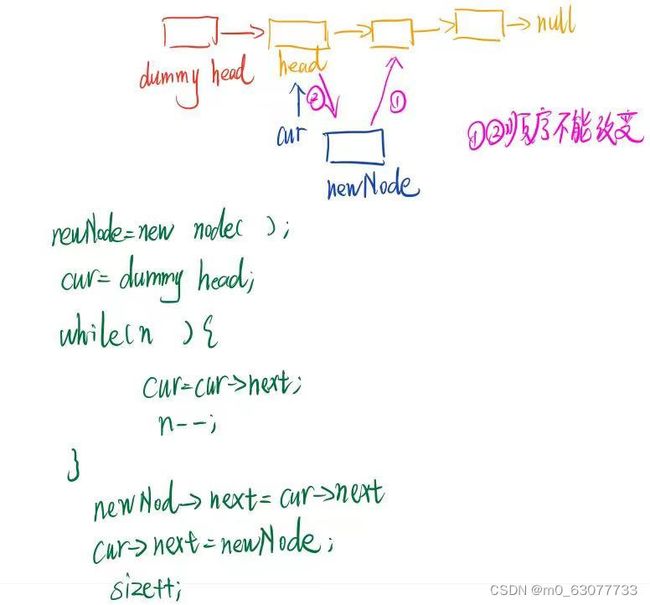 null
dummy head
head
②
①
cur
newNode
①②顺序不能改变
newNode=new node( );
cur= dummy head;
while(n ){
cur=cur->next;
n--;
}
newNod->next=cur->next
cur->next=newNode;
size++;
CSDN @m0_63077733